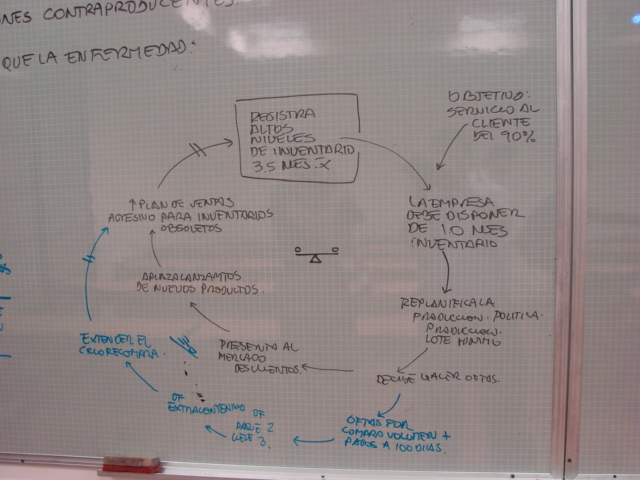 NES CONTRAPRODUCENTES.
QUE LA ENFERMEDAD.
REGISTRA
ALTOS
NIVELES
DE INVENTARIO
3.5 MES. X
OBJETIVO:
SERVICIO AL
CLIENTE
DEL 90%
LA EMPRESA
DEBE DISPONER
DE 10 MES
INVENTARIO
REPLANIFICA LA
PRODUCCION. POLITICA.
PRODUCCION.
LOTE MINIMO
DECIDE HACER OFTAS.
OFTAS POR
COMPRA VOLUMEN +
PAGOS A 100 DIAS.
OF
OF
PAGUE 2
LLEVE 3.
EXTENDER EL
PRESENTO AL
MERCADO
DESCUENTOS.
APLAZA LANZAMTOS
DE NUEVOS PRODUCTOS.
↑ PLAN DE VENTAS
AGRESIVO PARA INVENTARIOS
OBSOLETOS